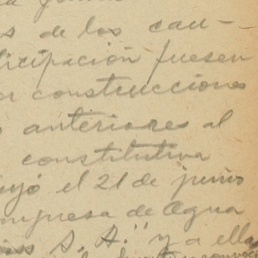 s de los cau-
licipación fuesen
or construcciones
anteriores al
constitutiva
uyó el 21 de junio
mpresa de Agua
iss S. A." y a ella